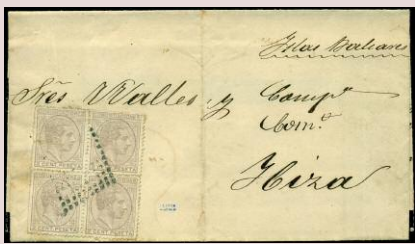 Islas Baleares
Sres Walles y Compª
Comº
Ibiza